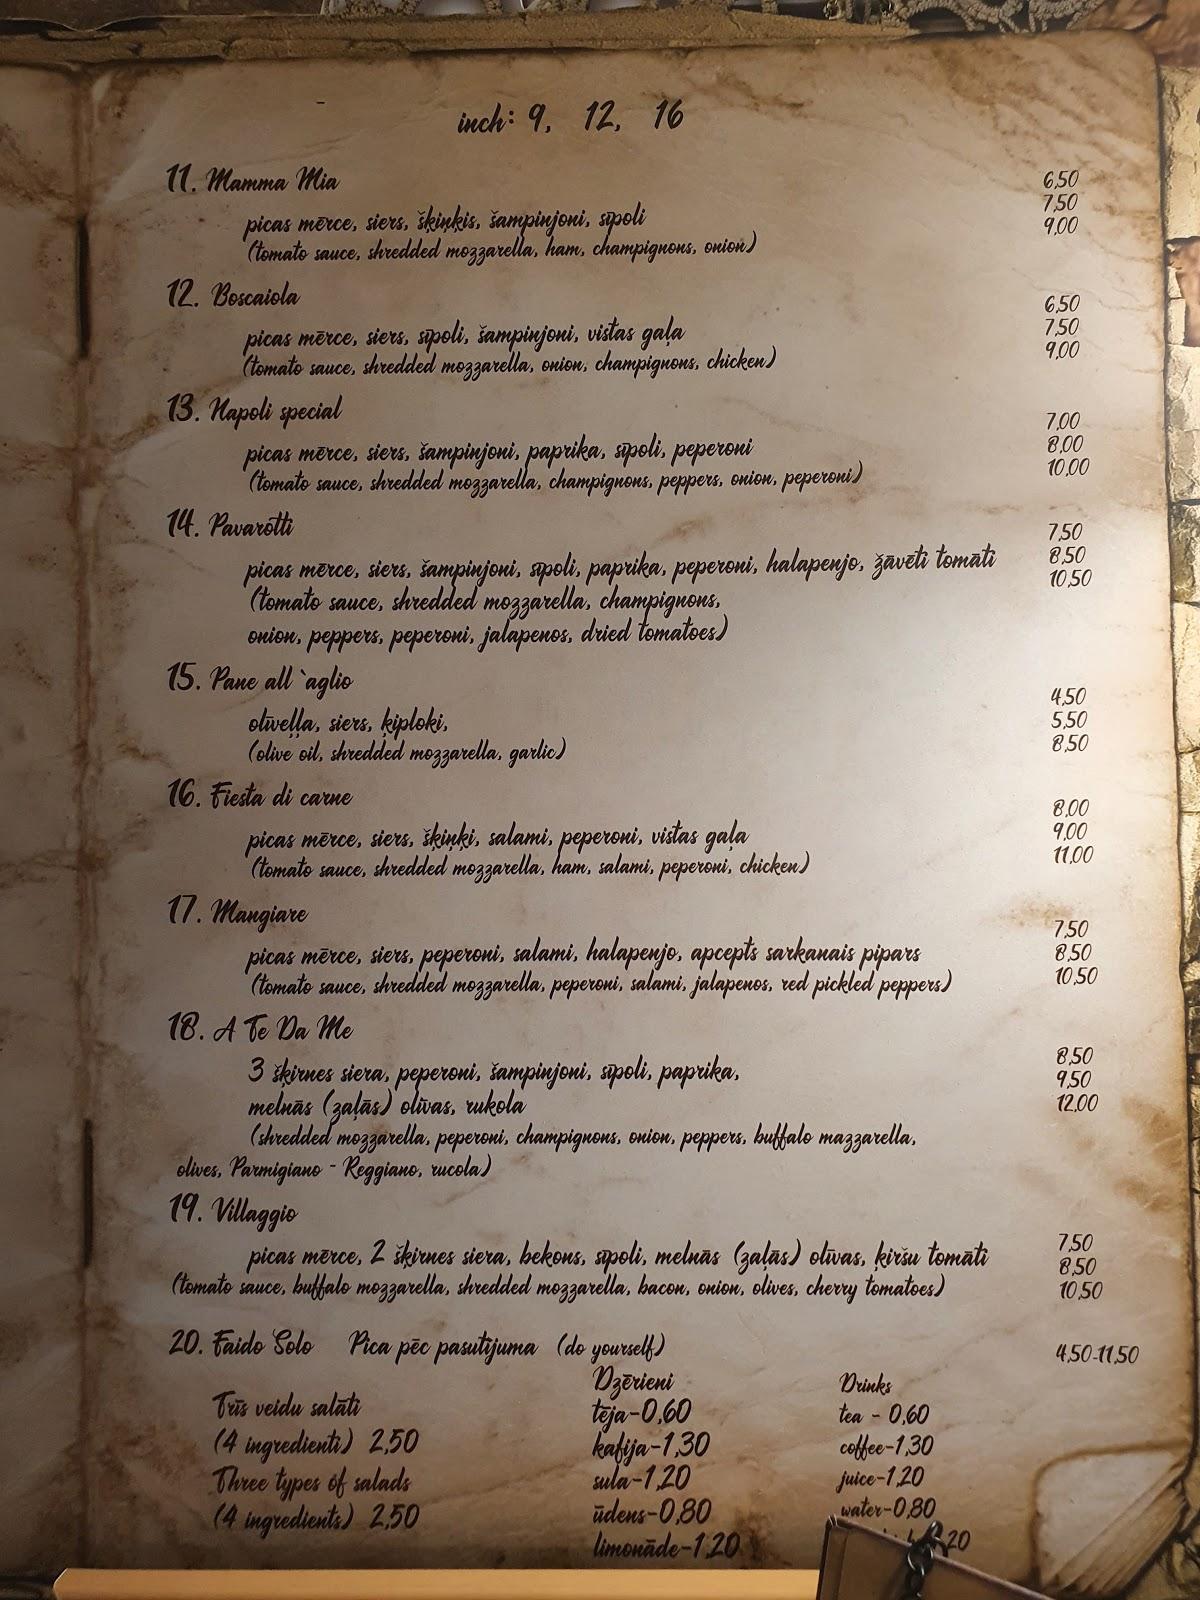 inch: 9, 12, 16
11. Mamma Mia
6,50
picas mērce, siers, šķiņķis, šampinjoni, sīpoli
7,50
(tomato sauce, shredded mozzarella, ham, champignons, onion)
9,00
12. Boscaiola
6,50
picas mērce, siers, sīpoli, šampinjoni, vistas gaļa
7,50
(tomato sauce, shredded mozzarella, onion, champignons, chicken)
9,00
13. Napoli special
7,00
picas mērce, siers, šampinjoni, paprika, sīpoli, peperoni
8,00
(tomato sauce, shredded mozzarella, champignons, peppers, onion, peperoni)
10,00
14. Pavarotti
7,50
picas mērce, siers, šampinjoni, sīpoli, paprika, peperoni, halapenjo, žāvēti tomāti
8,50
(tomato sauce, shredded mozzarella, champignons,
10,50
onion, peppers, peperoni, jalapenos, dried tomatoes)
15. Pane all `aglio
4,50
olīveļļa, siers, ķiploki,
5,50
(olive oil, shredded mozzarella, garlic)
8,50
16. Fiesta di carne
8,00
picas mērce, siers, šķiņķi, salami, peperoni, vistas gaļa
9,00
(tomato sauce, shredded mozzarella, ham, salami, peperoni, chicken)
11,00
17. Mangiare
7,50
picas mērce, siers, peperoni, salami, halapenjo, apcepts sarkanais pipars
8,50
(tomato sauce, shredded mozzarella, peperoni, salami, jalapenos, red pickled peppers)
10,50
18. A Te Da Me
8,50
3 šķirnes siera, peperoni, šampinjoni, sīpoli, paprika,
9,50
melnās (zaļās) olīvas, rukola
12,00
(shredded mozzarella, peperoni, champignons, onion, peppers, buffalo mazzarella,
olives, Parmigiano - Reggiano, rucola)
19. Villaggio
7,50
picas mērce, 2 šķirnes siera, bekons, sīpoli, melnās (zaļās) olīvas, ķiršu tomāti
8,50
(tomato sauce, buffalo mozzarella, shredded mozzarella, bacon, onion, olives, cherry tomatoes)
10,50
20. Faido Solo Pica pēc pasutījuma (do yourself)
4,50-11,50
Trīs veidu salāti
(4 ingredienti) 2,50
Three types of salads
(4 ingredients) 2,50
Dzērieni
tēja-0,60
kafija-1,30
sula-1,20
ūdens-0,80
limonāde-1,20
Drinks
tea - 0,60
coffee-1,30
juice-1,20
water-0,80